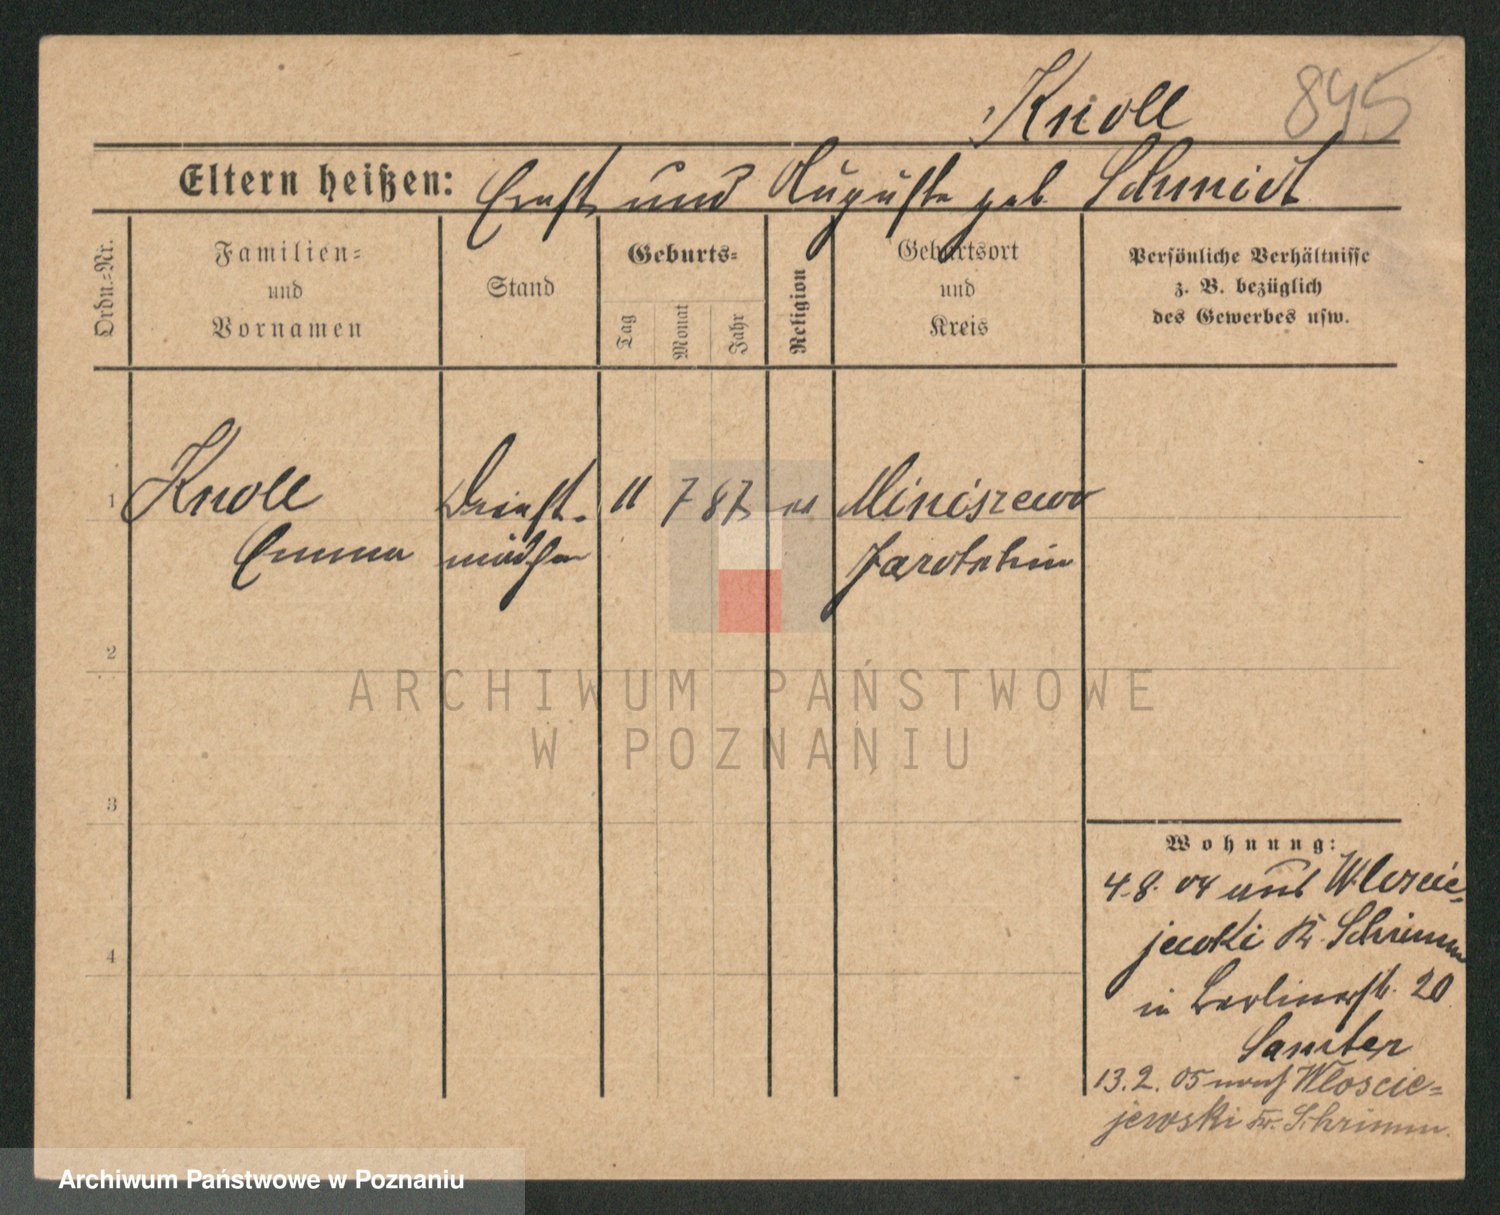 Knoll 895
Eltern heißen: Ernst und Auguste geb. Schmidt
Ordn.=Nr.
Familien=
und
Vornamen
Stand
Geburts=
Tag
Monat
Jahr
Religion
Geburtsort
und
Kreis
Persönliche Verhältnisse
z. B. bezüglich
des Gewerbes usw.
1 Knoll Dienst- 11 7 87 Miniszewo
Emma mädchen Jarotschin
2
ARCHIWUM PAŃSTWOWE
W POZNANIU
3
Wohnung:
4.8.04 aus Wloscie-
jewki Kr. Schrimm
4
in Berlinerstr. 20
Samter
13.2.05 nach Wloscie=
jewski Kr. Schrimm.
Archiwum Państwowe w Poznaniu